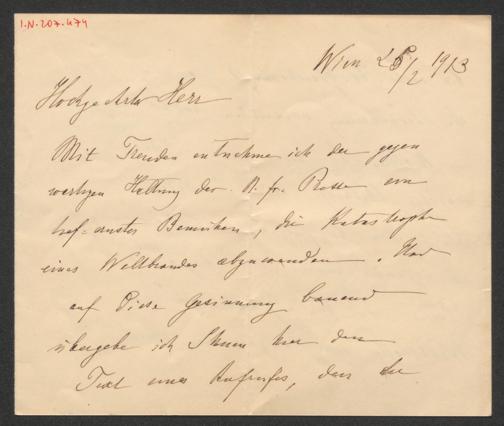 I.N. 207.474
Wien 26/2 1913
Hochgeehrter Herr
Mit Freuden entnehme ich der gegen
wärtigen Haltung der N. fr. Presse ein
tief-ernstes Bemühen, die Katastrophe
eines Weltbrandes abzuwenden. Und
auf diese Gesinnung bauend
übergebe ich Ihnen hier den
Text eines Aufrufes, den